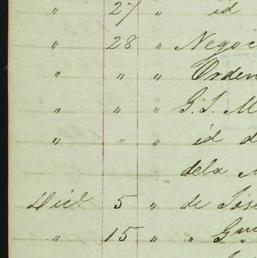 " 27 " id
" 28 " Negoc
" " " Orden
" " " G. S. M
" " " id d
dela
Dic.e 5 " de José
" 15 " "